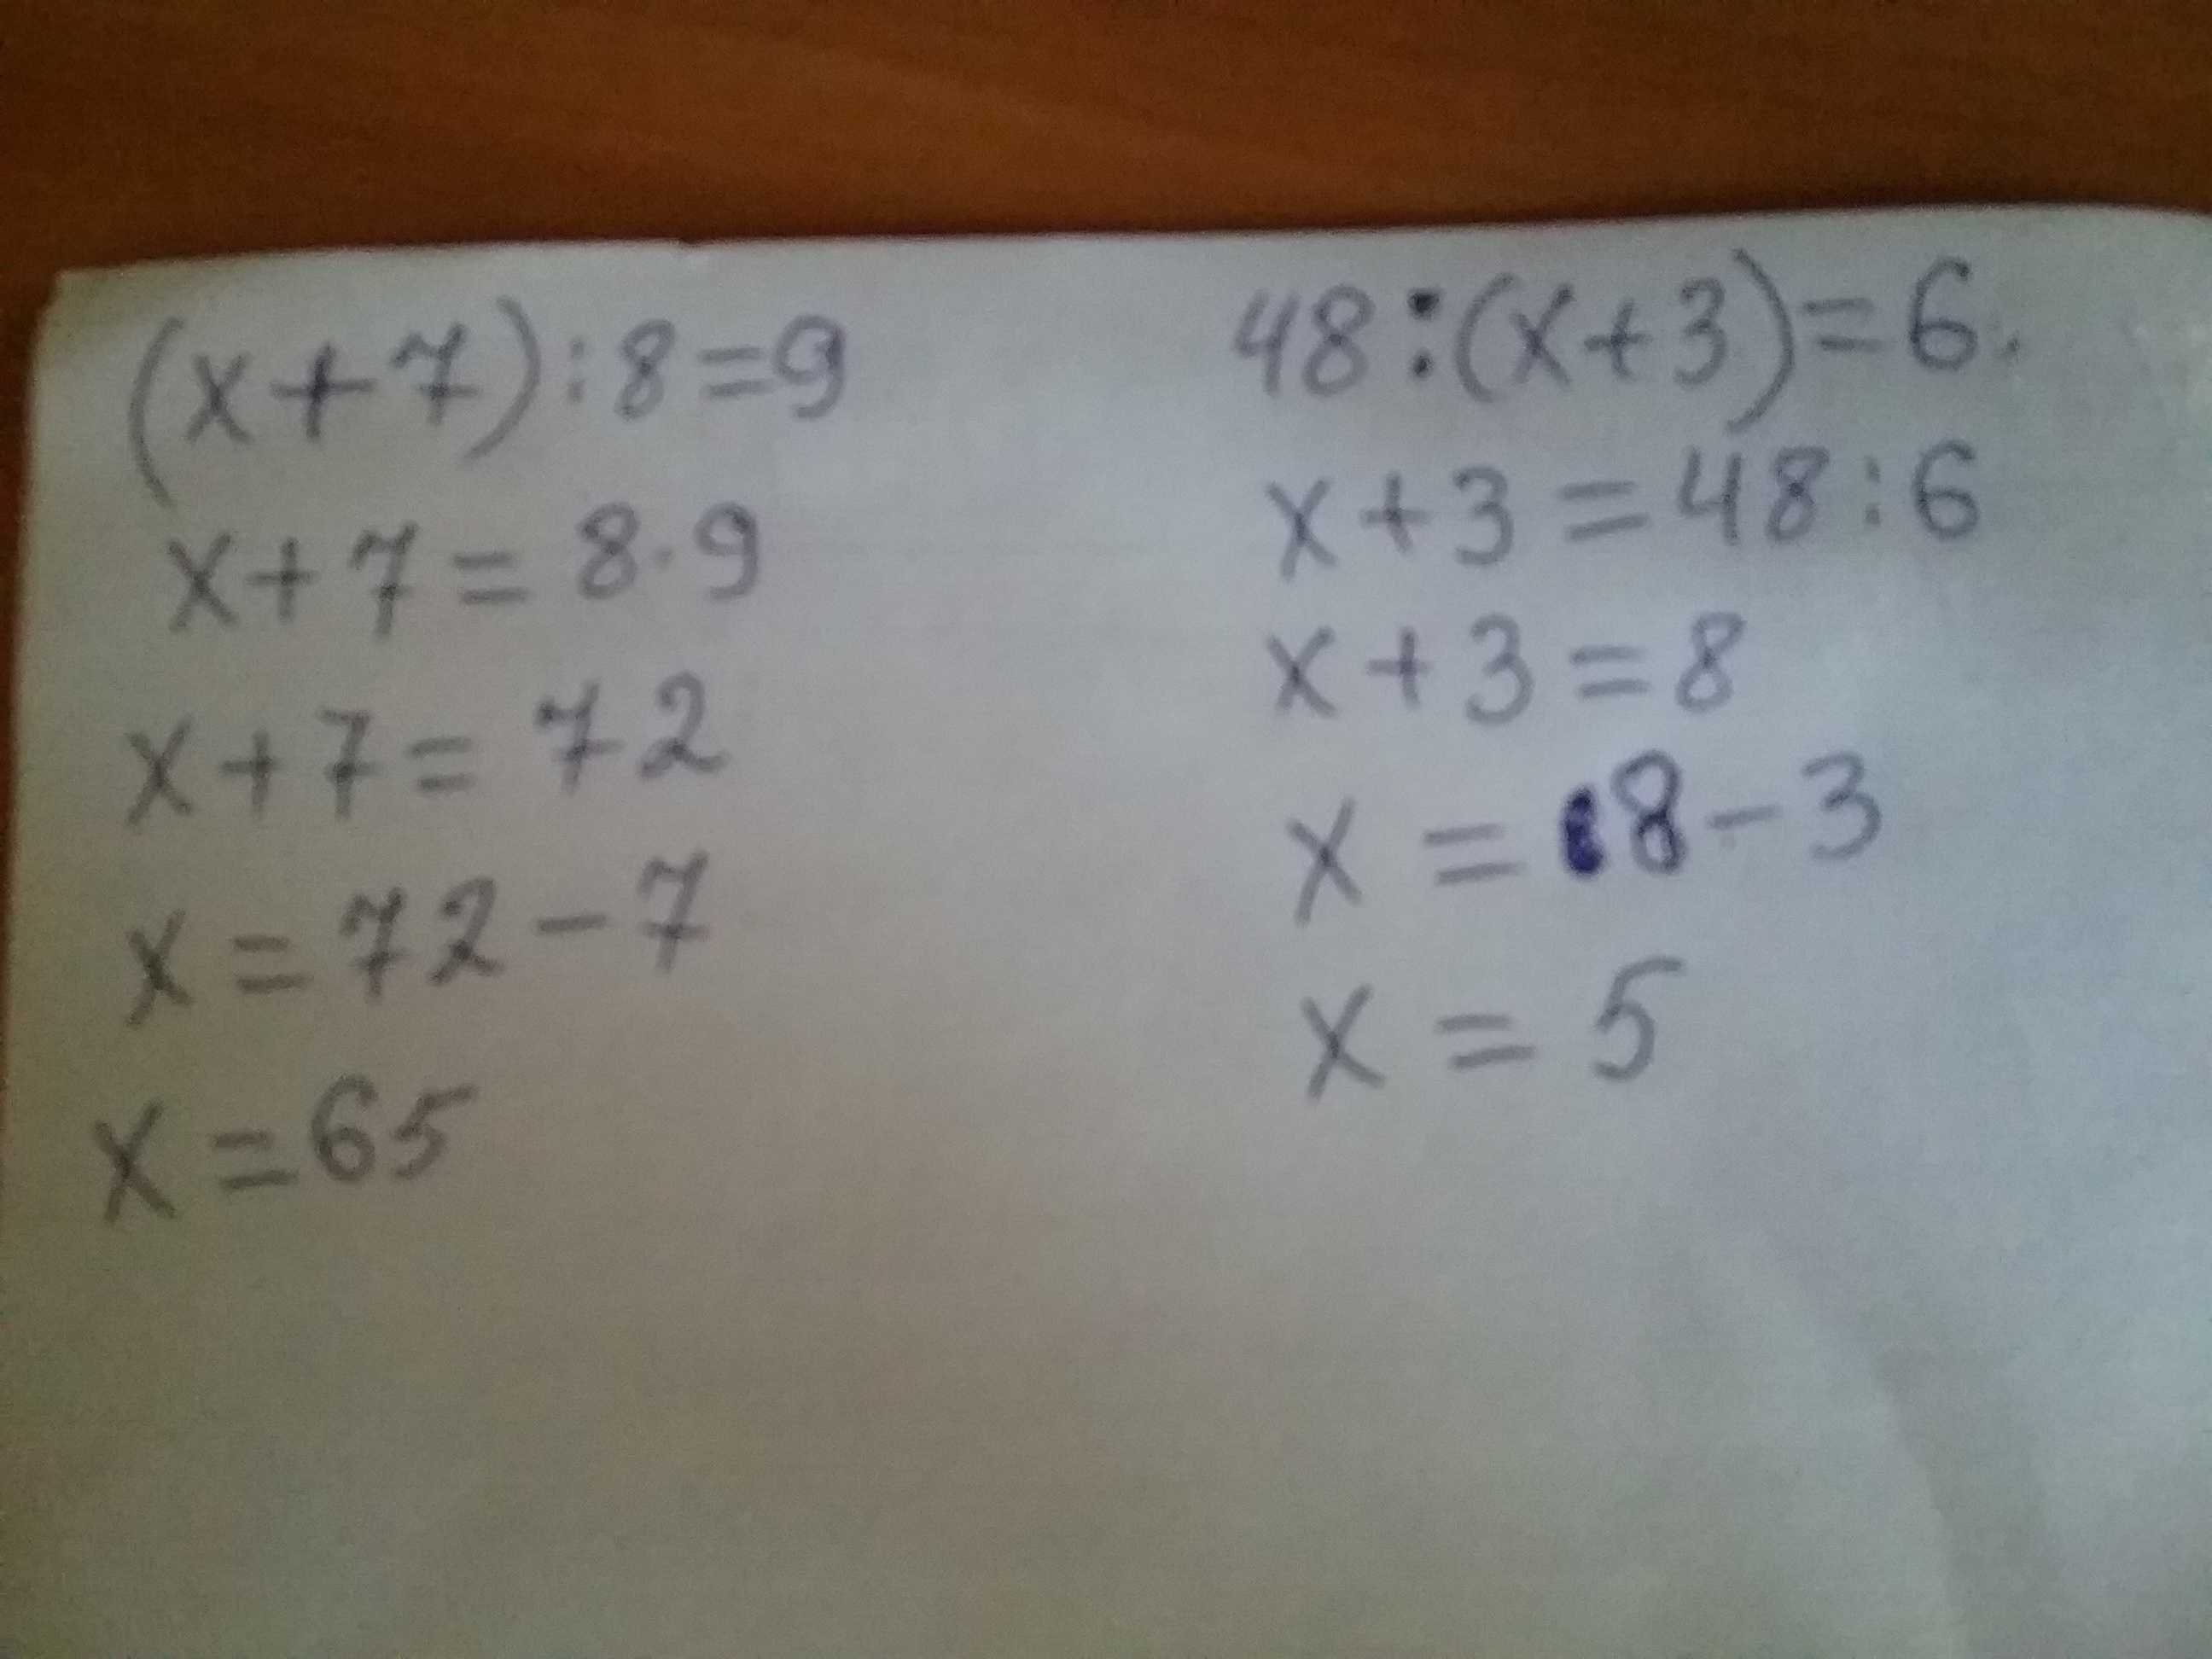 (x+7):8=9
x+7=8·9
x+7=72
x=72-7
x=65
48:(x+3)=6.
x+3=48:6
x+3=8
x=8-3
x=5